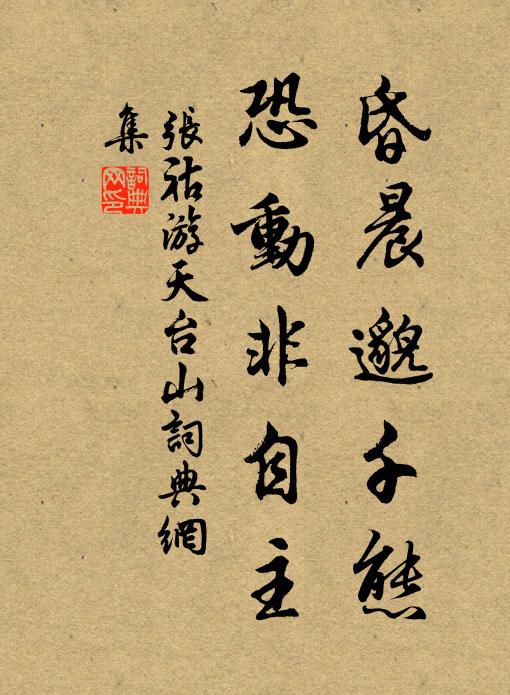 昏晨邈千態
恐動非自主
張祜游天台山詞典網
集
詞典網印